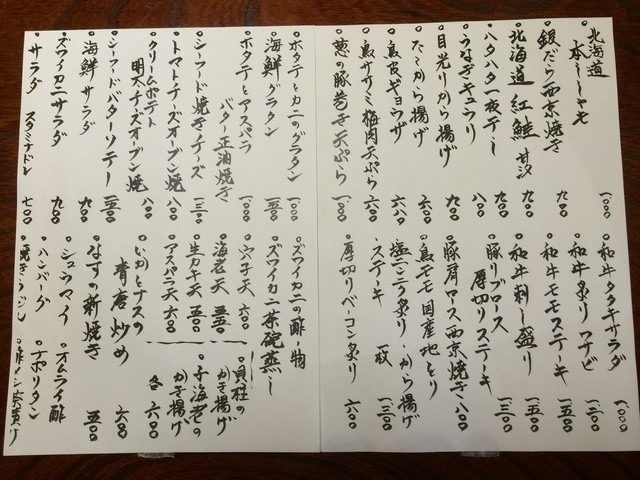 北海道 本ししゃも 一〇〇〇
銀だら西京焼き 九〇〇
北海道 紅鮭 甘汐 九〇〇
ハタハタ一夜干し 九〇〇
うなぎキュウリ 八〇〇
目光りから揚げ 九〇〇
たこから揚げ 六〇〇
鳥皮ギョウザ 六八〇
鳥ササミ梅肉天ぷら 六〇〇
葱の豚巻き天ぷら 一〇〇〇
和牛タタキサラダ 一〇〇〇
和牛炙りワサビ 一二〇〇
和牛モモステーキ 一五〇〇
和牛刺し盛り 一五〇〇
豚リブロース 厚切りステーキ 一三〇〇
豚肩ロース西京焼き 八〇〇
鳥モモ国産地とり
塩ニンニク炙り・から揚げ
・ステーキ 一枚 一三〇〇
厚切りベーコン炙り 六〇〇
ホタテとカニのグラタン 一〇〇〇
海鮮グラタン 一五〇〇
ホタテとアスパラ バター正油焼き 一〇〇〇
シーフード焼きチーズ 一三〇〇
トマトチーズオーブン焼 八〇〇
クリームポテト 明太チーズオーブン焼 八〇〇
シーフードバターソテー 一五〇〇
海鮮サラダ 九〇〇
ズワイカニサラダ 九〇〇
サラダ スタミナドレ 七〇〇
ズワイカニの酢の物
ズワイカニ茶碗蒸し
穴子天 六〇〇
海老天 五五〇
生ガキ天 五五〇
アスパラ天 六〇〇
・貝柱のかき揚げ
・子海老のかき揚げ
各 六〇〇
いかとナスの 青唐炒め 六〇〇
なすの新焼き 五〇〇
シュウマイ オムライ酢
ハンバーグ ナポリタン